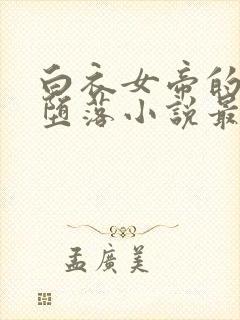 白衣女帝的
墮落小說最
孟廣美